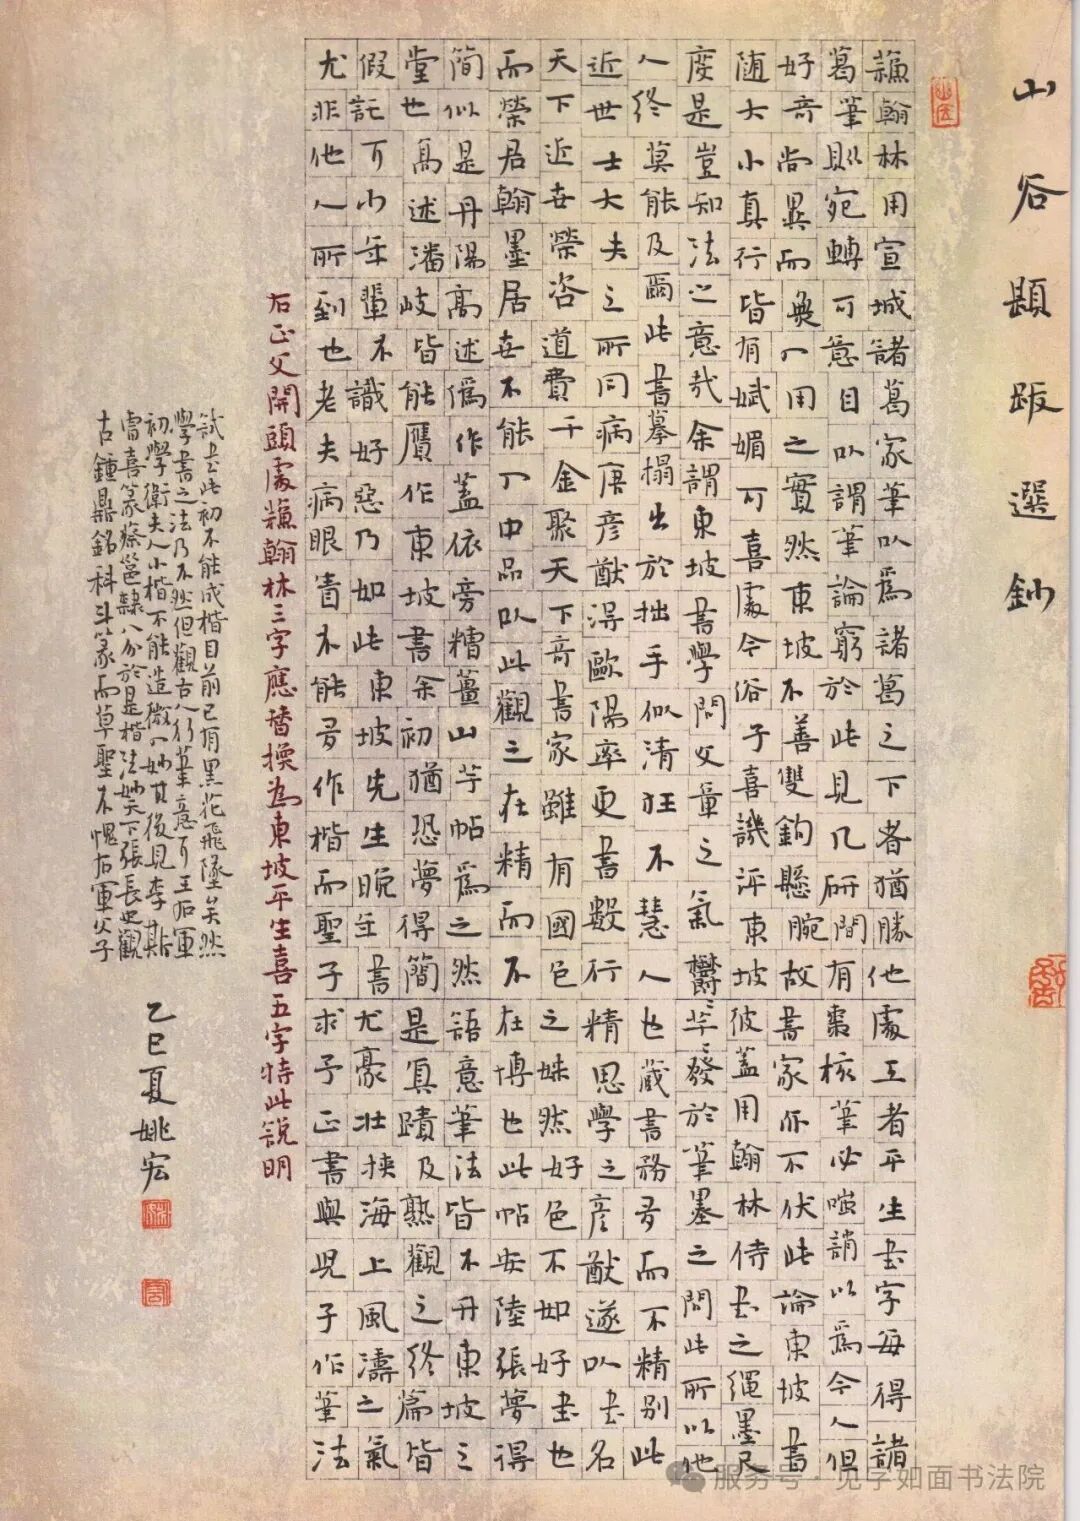 山谷題跋選鈔
蘓翰林用宣城諸葛家筆以為諸葛之下者猶勝他處工者平生書字每得諸
葛筆則宛轉可意目以謂筆論窮於此見几研間有棗核筆必嗤誚以為今人但
好奇尚異而無入用之實然東坡不善雙鉤懸腕故書家亦不伏此論東坡書
随大小真行皆有娬媚可喜處今俗子喜譏評東坡彼蓋用翰林侍書之繩墨尺
度是豈知法之意哉余謂東坡書學問文章之氣欝〻芊〻發於筆墨之間此所以他
人終莫能及爾此書摹搨出於拙手似清狂不慧人也藏書務多而不精別此
近世士大夫之所同病唐彦猷得歐陽率更書數行精思學之彦猷遂以書名
天下近世榮咨道費千金聚天下奇書家雖有國色之姝然好色不如好書也
而榮君翰墨居世不能入中品以此觀之在精而不在博也此帖安陸張夢得
簡似是丹陽高述偽作蓋依旁糟薑山芋帖為之然語意筆法皆不升東坡之
堂也高述潘岐皆能贋作東坡書余初猶恐夢得簡是真蹟及熟觀之終篇皆
假託耳少年輩不識好惡乃如此東坡先生晚年書尤豪壯挾海上風濤之氣
尤非他人所到也老夫病眼眚不能多作楷而聖子求予正書與兒子作筆法
右正文開頭處蘓翰林三字應替換為東坡平生喜五字特此說明
試書此初不能成楷目前已有黑花飛墜矣然
學書之法乃不然但觀古人行筆意耳王右軍
初學衛夫人小楷不能造微入妙其後見李斯
曹喜篆蔡邕隸八分於是楷法妙天下張長史觀
古鍾鼎銘科斗篆而草聖不愧右軍父子
乙巳夏姚宏
服务号·见字如面书法院